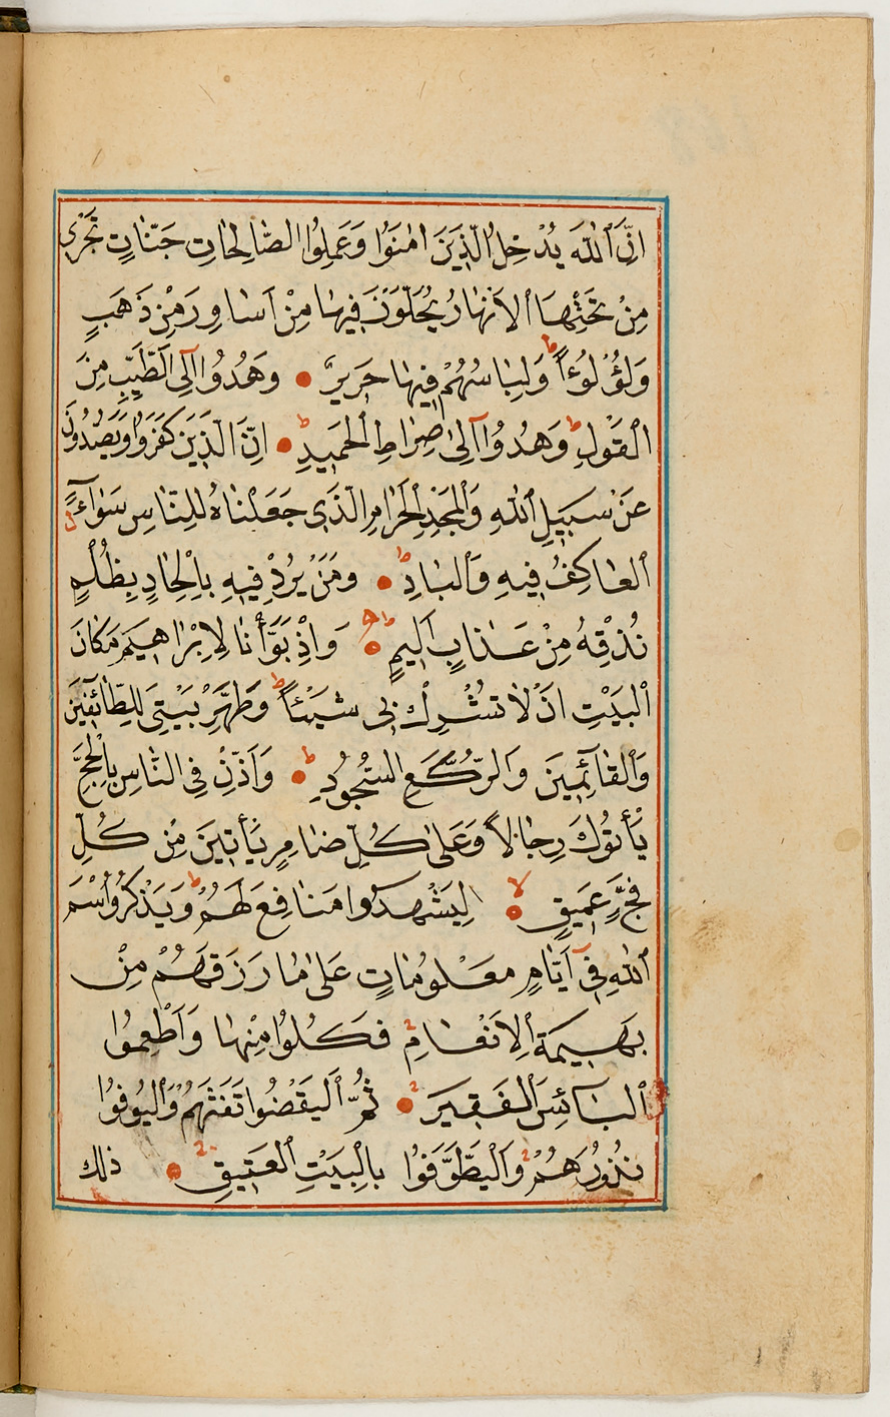 اِنَّ ٱللّٰهَ يُدْخِلُ الَّذِينَ اٰمَنُوا وَعَمِلُوا الصَّالِحَاتِ جَنَّاتٍ تَجْرِى
مِنْ تَحْتِهَا ٱلْاَنْهَارُ يُحَلَّوْنَ فِيهَا مِنْ اَسَاوِرَ مِنْ ذَهَبٍ
وَلُؤْلُؤًاط وَلِبَاسُهُمْ فِيهَا حَرِيرٌ وَهُدُوا اِلَى الطَّيِّبِ مِنَ
الْقَوْلِط وَهُدُوا اِلٰى صِرَاطِ الْحَمِيدِط اِنَّ الَّذِينَ كَفَرُوا وَيَصُدُّونَ
عَنْ سَبِيلِ اللّٰهِ وَالْمَجْدِ الْحَرَامِ الَّذِى جَعَلْنَاهُ لِلنَّاسِ سَوَآءً
ٱلْعَاكِفُ فِيهِ وَالْبَادِط وَمَنْ يُرِدْ فِيهِ بِاِلْحَادٍ بِظُلْمٍ
نُذِقْهُ مِنْ عَذَابٍ اَلِيمٍط وَاِذْ بَوَّأْنَا لِاِبْرَاهِيمَ مَكَانَ
ٱلْبَيْتِ اَنْ لَا تُشْرِكْ بِى شَيْئًاط وَطَهِّرْ بَيْتِىَ لِلطَّائِفِينَ
وَالْقَآئِمِينَ وَالرُّكَّعِ السُّجُودِط وَاَذِّنْ فِى النَّاسِ بِالْحَجِّ
يَأْتُوكَ رِجَالًا وَعَلٰى كُلِّ ضَامِرٍ يَأْتِينَ مِنْ كُلِّ
فَجٍّ عَمِيقٍلا لِيَشْهَدُوا مَنَافِعَ لَهُمْ وَيَذْكُرُوا اسْمَ
اللّٰهِ فِىٓ اَيَّامٍ مَعْلُومَاتٍ عَلٰى مَا رَزَقَهُمْ مِنْ
بَهِيمَةِ ٱلْاَنْعَامِ فَكُلُوا مِنْهَا وَاَطْعِمُوا
ٱلْبَائِسَ الْفَقِيرَ ثُمَّ الْيَقْضُوا تَفَثَهُمْ وَالْيُوفُوا
نُذُورَهُمْ وَالْيَطَّوَّفُوا بِالْبَيْتِ الْعَتِيقِ ذلك